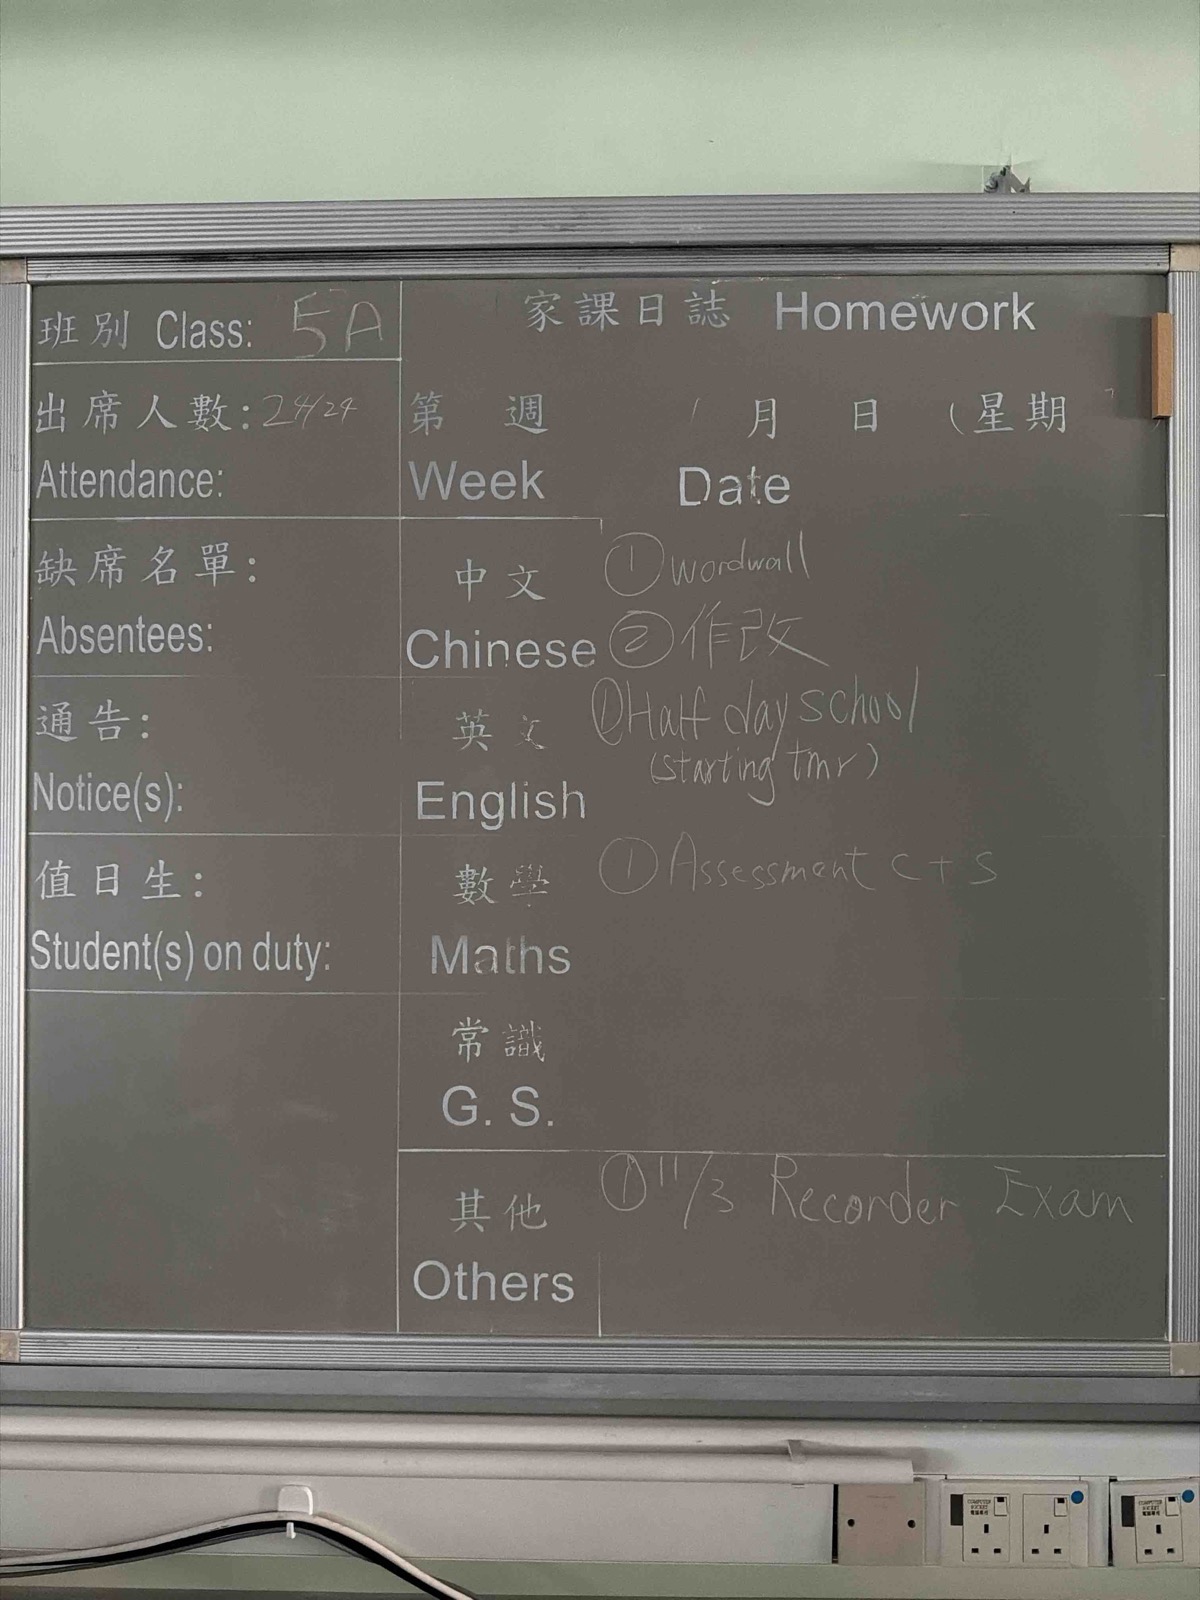 班別 Class: 5A
出席人數: 24/24
Attendance:
缺席名單:
Absentees:
通告:
Notice(s):
值日生:
Student(s) on duty:
家課日誌 Homework
第 週 月 日 (星期
Week Date
中文
Chinese
① wordwall
② 作改
英文
English
① Half day school
(starting tmr)
數學
Maths
① Assessment C+S
常識
G. S.
其他
Others
① 11/3 Recorder Exam